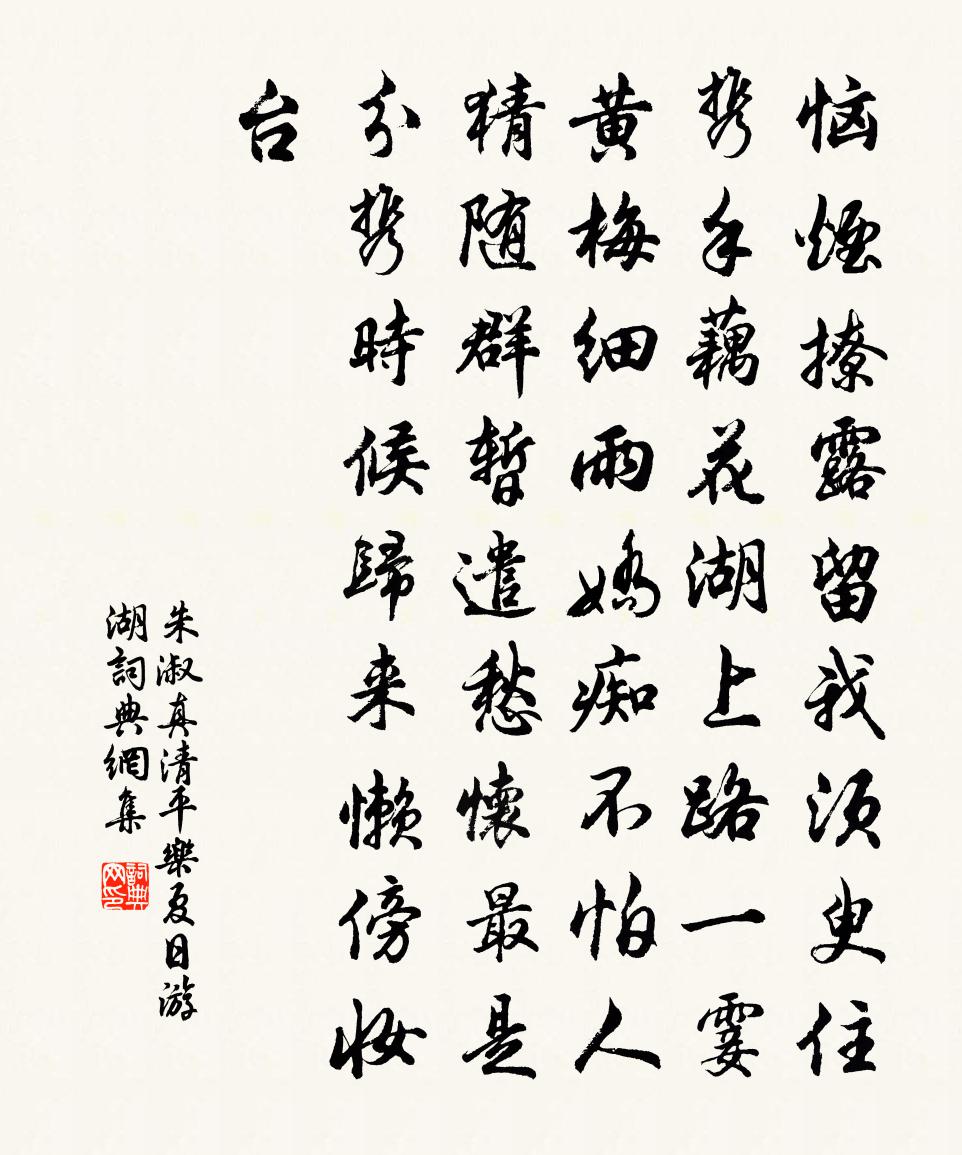 恼煙撩露留我须臾住
携手藕花湖上路一霎
黄梅细雨娇痴不怕人
猜随群暂遣愁懷最是
分携時候歸来懒傍妆
台
朱淑真清平樂夏日游
湖詞典網集
詞典网印